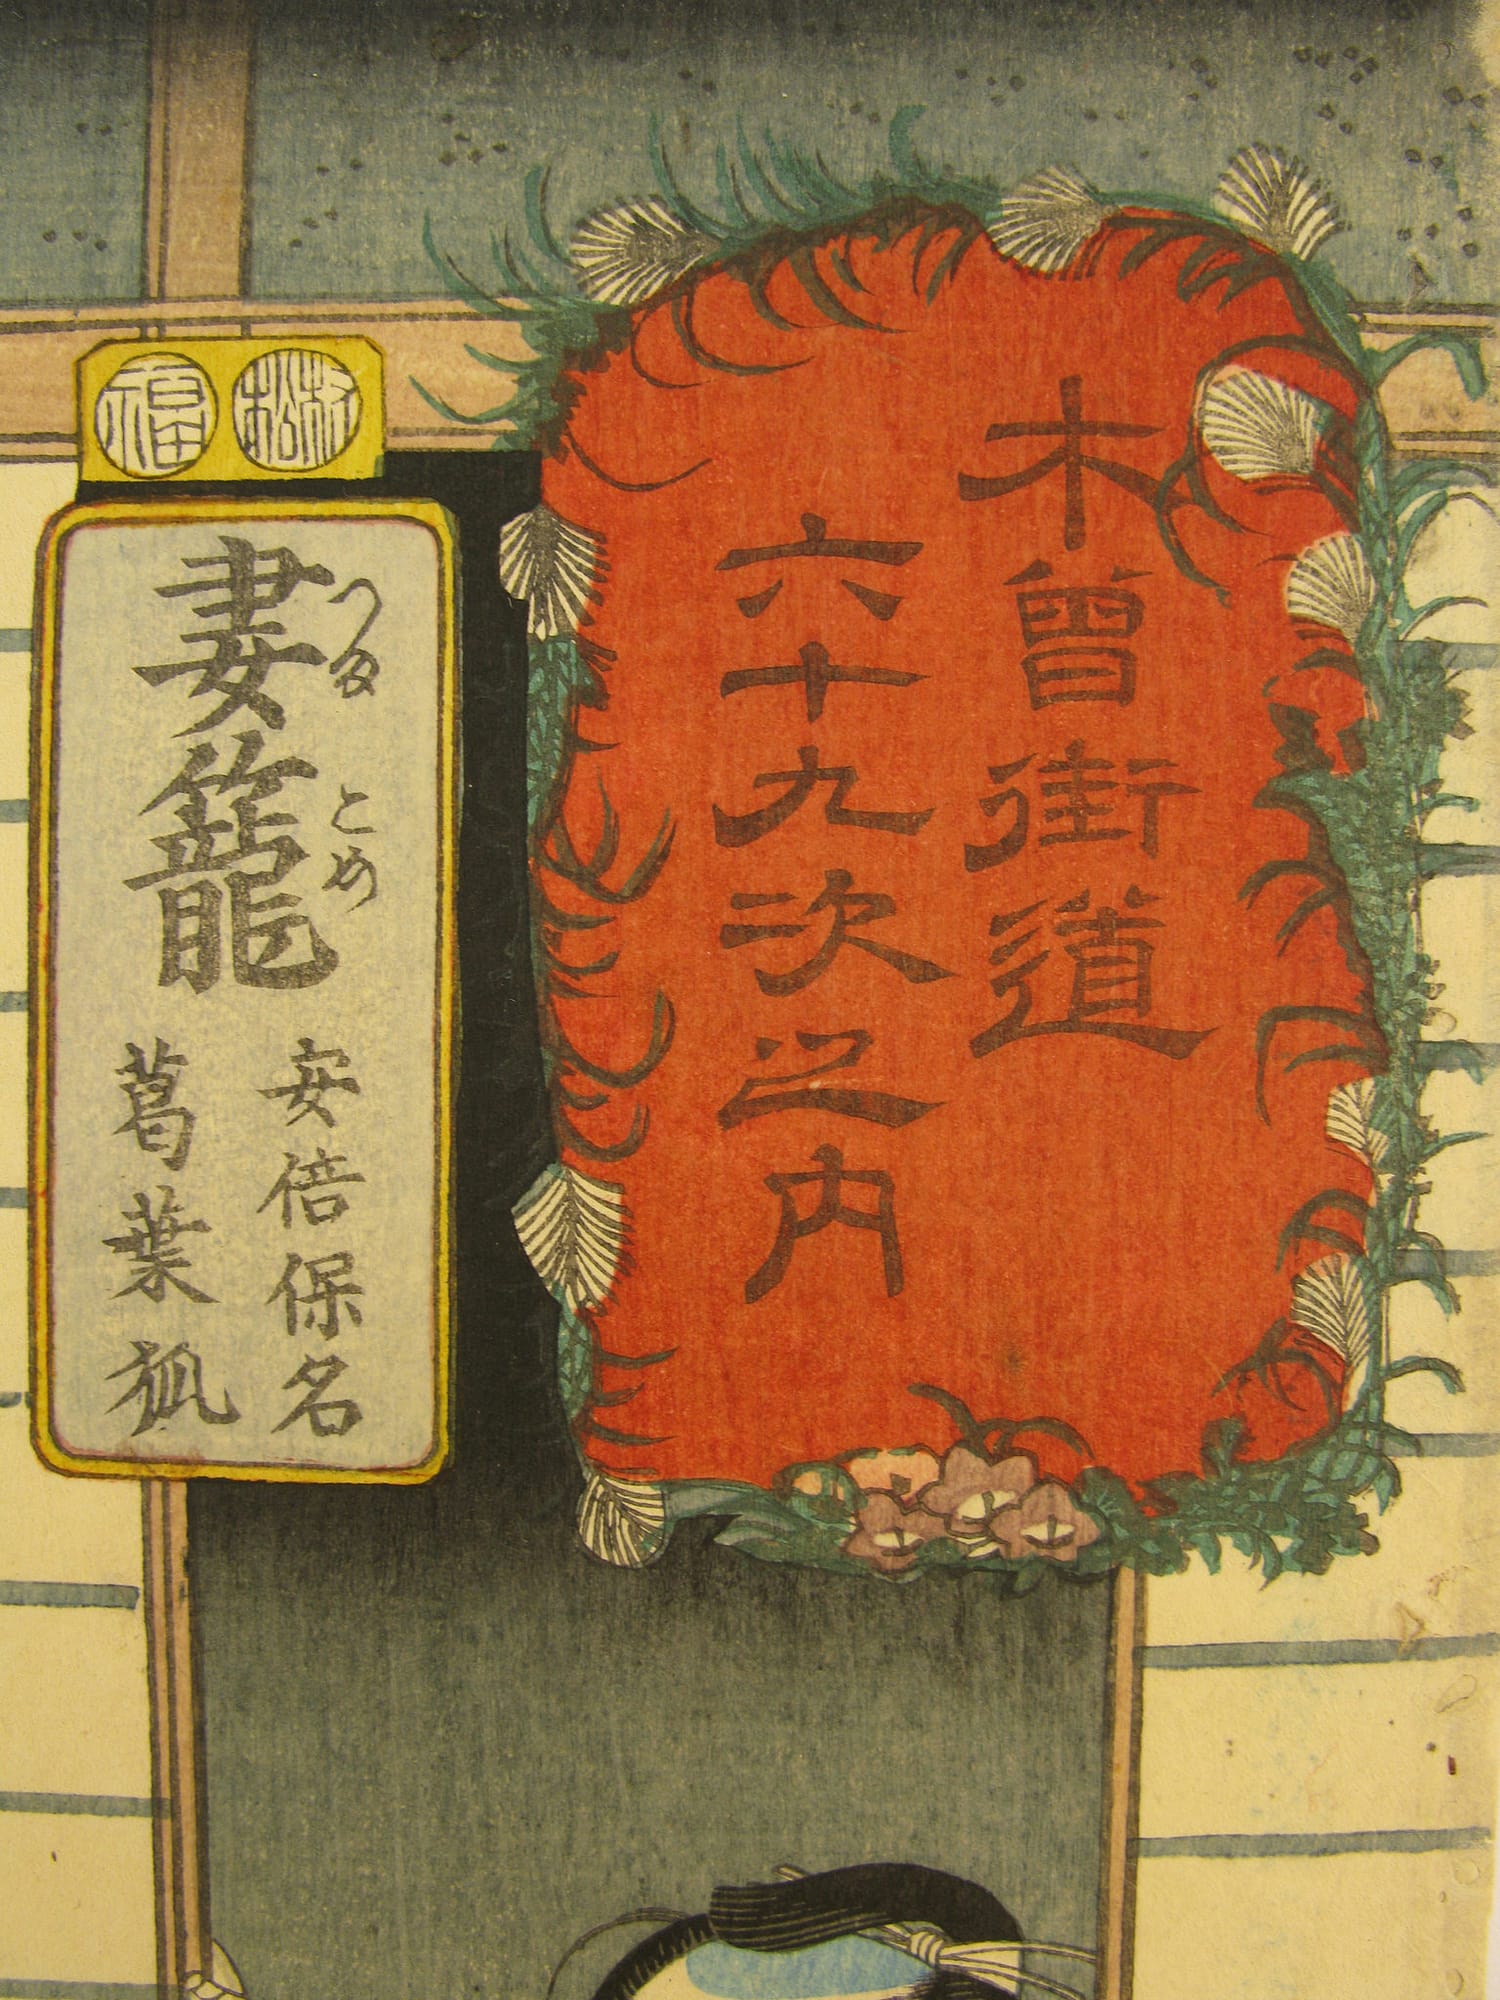 木曽街道
六十九次之内
妻籠
つま
ごめ
安倍保名
葛葉狐
福